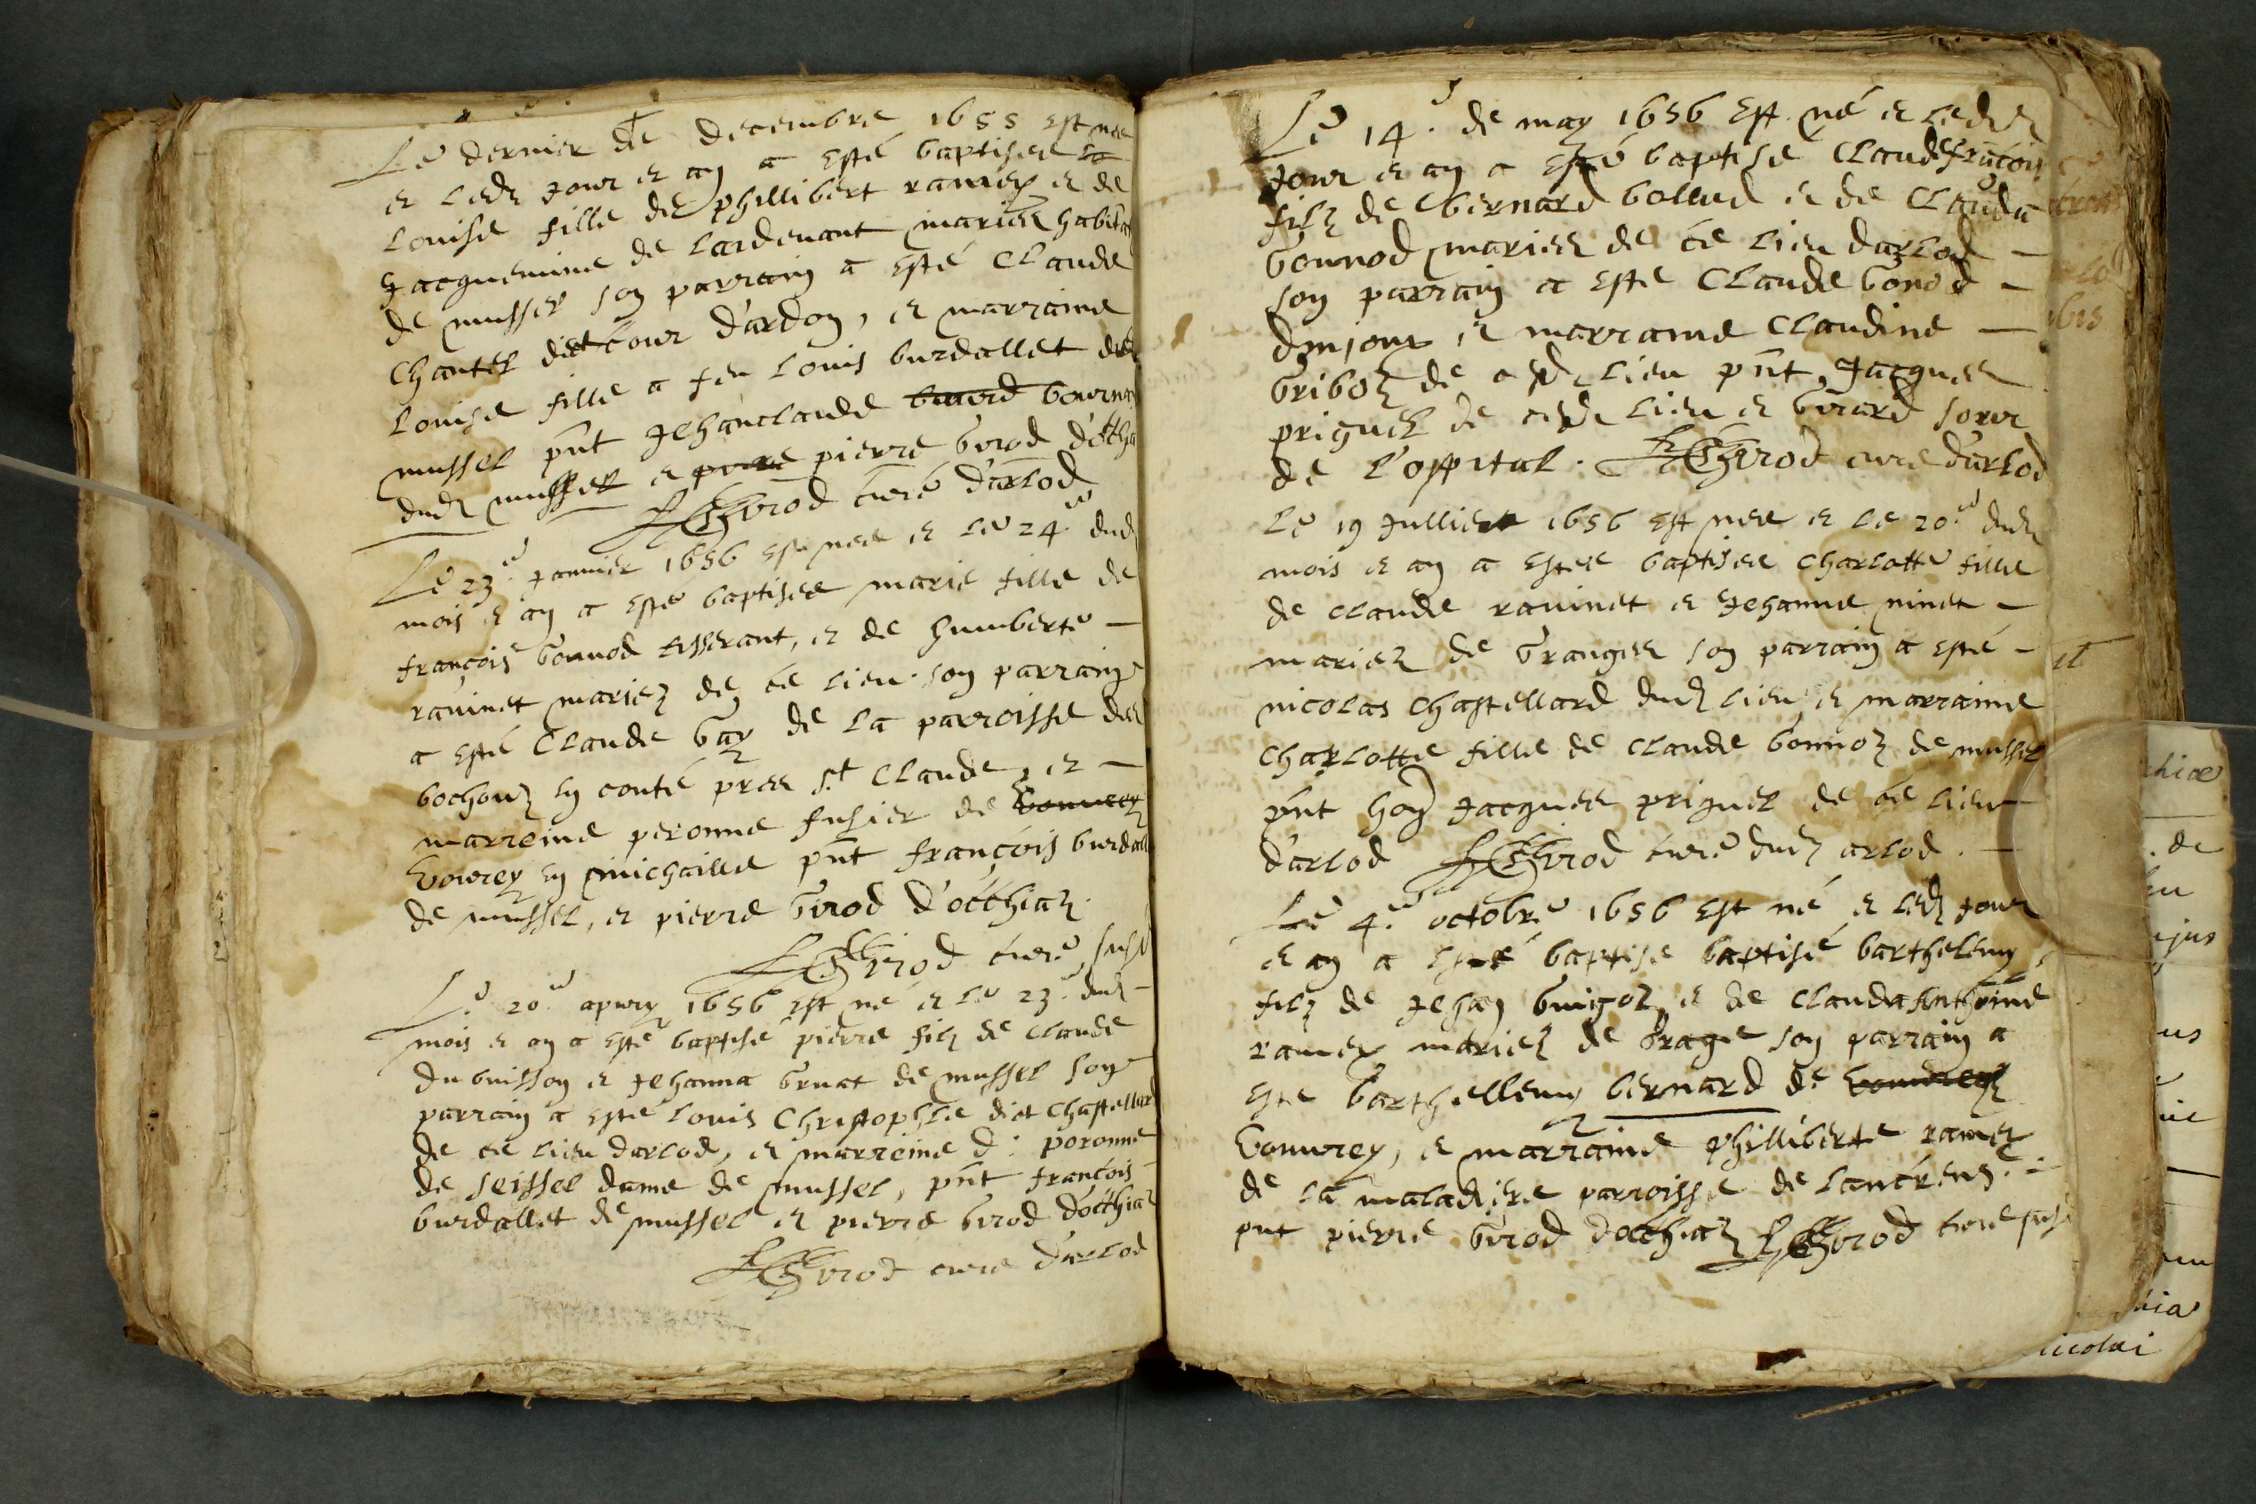 Le dernier de decembre 1655 est nee
et ledt jour et an a esté baptisee la
Louise fille de phillibert ramex et de
Jacquemine de lardenant mariez habitas
de mussel son parrain a esté Claude
Chantel dict cour d'ardon, et marraine
Louise fille a feu Louis burdallet de
mussel pnt Jehanclaude bourna
dudt mussel et pierre Girod d'otthia
Girod curé d'arlod
Le 23e Janvier 1656 est nee et le 24e dudt
mois et an a esté baptisee marie fille de
françois Gonnod tisserant, et de humberte
ravinet mariez de ce lieu son parrain
a esté Claude Gay de la parroisse des
bochouz en conté pres st Claude, et
marreine peronne fusier de
Vouvrey en michaille pnt françois burdallet
de mussel, et pierre Girod d'otthiaz
Girod curé susdt
Le 20e apvry 1656 est né et le 23e dudt
mois et an a esté baptisé pierre filz de Claude
dubuisson et Jehanna Gruat de mussel son
parrain a esté Louis Christophle dict Chastellard
de ce lieu darlod, et marreine d: peronne
de seissel dame de mussel, pnt françois
burdallet de mussel et pierre Girod d'otthiaz
Girod cure d'arlod
Le 14e de may 1656 est né et ledit
Jour et an a esté baptisé Claudefrãcois
filz de bernard bollud et de Clauda
Gonnod mariez de ce lieu darlod
son parrain a este Claude Gonod
dinjoux et marraine Claudine
briboz de cedt lieu pnt Jacques
priguel de cedt lieu et Girard
de l'ospital. Girod cure darlod
Le 19 Jullier 1656 est nee et le 20e dudt
mois et an a estee baptisee Charlotte fille
de claude ravinet et Jehanne ninet
mariez de Granges son parrain a esté
nicolas Chastellard dudt lieu et marraine
Charlotte fille de Claude bonnoz de mussel
pnt hon Jacques priguel de ce lieu
d'arlod Girod curé dudt arlod.
Le 4e octobre 1656 est né et ledt jour
et an a esté baptise baptisé barthelemy
filz de Jehan Guigoz et de Clauda Anthoine
ramex mariez de Grage son parrain a
este barthellemy bernard de
Vouvrey, et marraine phillíberte ramez
de la maladiere parroisse de lancrens
pnt pierre Girod dotthiaz Girod cure susdt